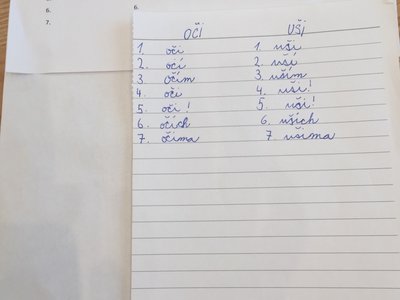 6.
7.
6.
OČI UŠI
1. oči 1. uši
2. očí 2. uší
3. očím 3. uším
4. oči 4. uši!
5. oči! 5. uši!
6. očích 6. uších
7. očima 7. ušima